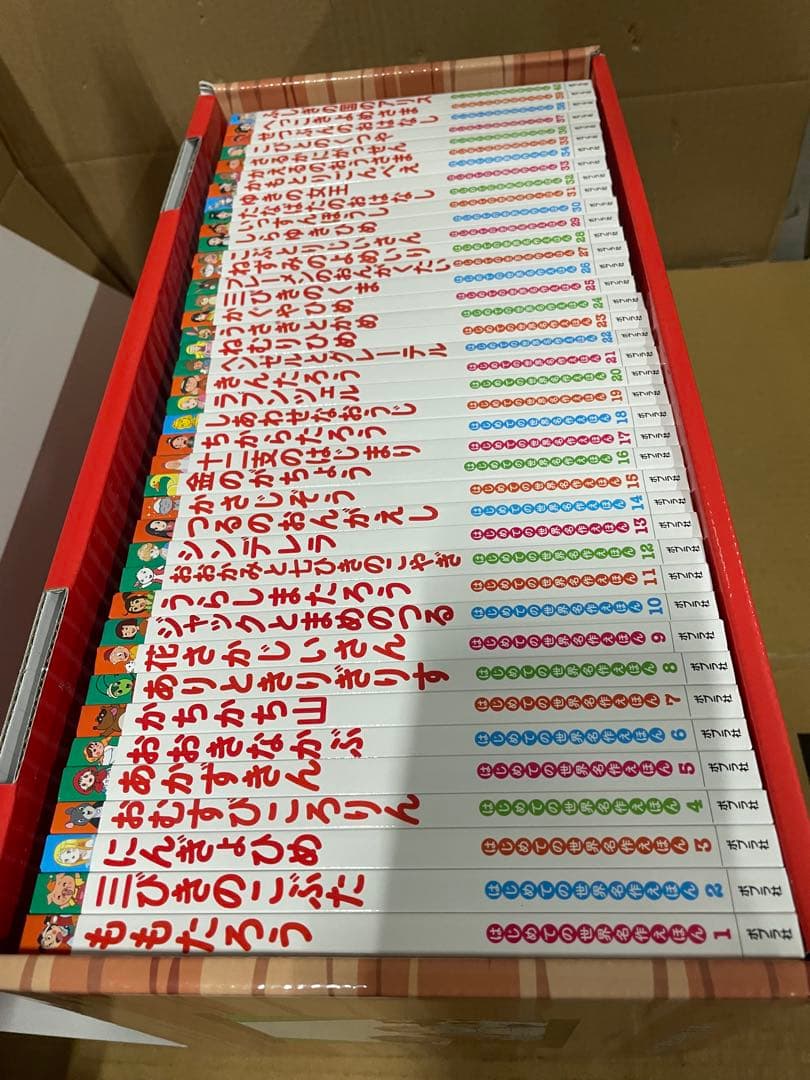 ふしぎの国のアリス はじめての世界名作えほん 40 ポプラ社
へっこきよめさま はじめての世界名作えほん 39 ポプラ社
せつぶんのおはなし はじめての世界名作えほん 38 ポプラ社
こびとのくつや はじめての世界名作えほん 37 ポプラ社
さるかにがっせん はじめての世界名作えほん 36 ポプラ社
かえるのおうさま はじめての世界名作えほん 35 ポプラ社
かもとりごんべえ はじめての世界名作えほん 34 ポプラ社
ゆきの女王 はじめての世界名作えほん 33 ポプラ社
たなばたのおはなし はじめての世界名作えほん 32 ポプラ社
いっすんぼうし はじめての世界名作えほん 31 ポプラ社
しらゆきひめ はじめての世界名作えほん 30 ポプラ社
こぶとりじいさん はじめての世界名作えほん 29 ポプラ社
ねずみのよめいり はじめての世界名作えほん 28 ポプラ社
ブレーメンのおんがくたい はじめての世界名作えほん 27 ポプラ社
三びきのくま はじめての世界名作えほん 26 ポプラ社
かぐやひめ はじめての世界名作えほん 25 ポプラ社
うさぎとかめ はじめての世界名作えほん 24 ポプラ社
ねむりひめ はじめての世界名作えほん 23 ポプラ社
ヘンゼルとグレーテル はじめての世界名作えほん 22 ポプラ社
きんたろう はじめての世界名作えほん 21 ポプラ社
ラプンツェル はじめての世界名作えほん 20 ポプラ社
しあわせなおうじ はじめての世界名作えほん 19 ポプラ社
ちからたろう はじめての世界名作えほん 18 ポプラ社
十二支のはじまり はじめての世界名作えほん 17 ポプラ社
金のがちょう はじめての世界名作えほん 16 ポプラ社
かさじぞう はじめての世界名作えほん 15 ポプラ社
つるのおんがえし はじめての世界名作えほん 14 ポプラ社
シンデレラ はじめての世界名作えほん 13 ポプラ社
おおかみと七ひきのこやぎ はじめての世界名作えほん 12 ポプラ社
うらしまたろう はじめての世界名作えほん 11 ポプラ社
ジャックとまめのつる はじめての世界名作えほん 10 ポプラ社
花さかじいさん はじめての世界名作えほん 9 ポプラ社
ありときりぎりす はじめての世界名作えほん 8 ポプラ社
かちかち山 はじめての世界名作えほん 7 ポプラ社
おおきなかぶ はじめての世界名作えほん 6 ポプラ社
あかずきん はじめての世界名作えほん 5 ポプラ社
おむすびころりん はじめての世界名作えほん 4 ポプラ社
にんぎょひめ はじめての世界名作えほん 3 ポプラ社
三びきのこぶた はじめての世界名作えほん 2 ポプラ社
ももたろう はじめての世界名作えほん 1 ポプラ社